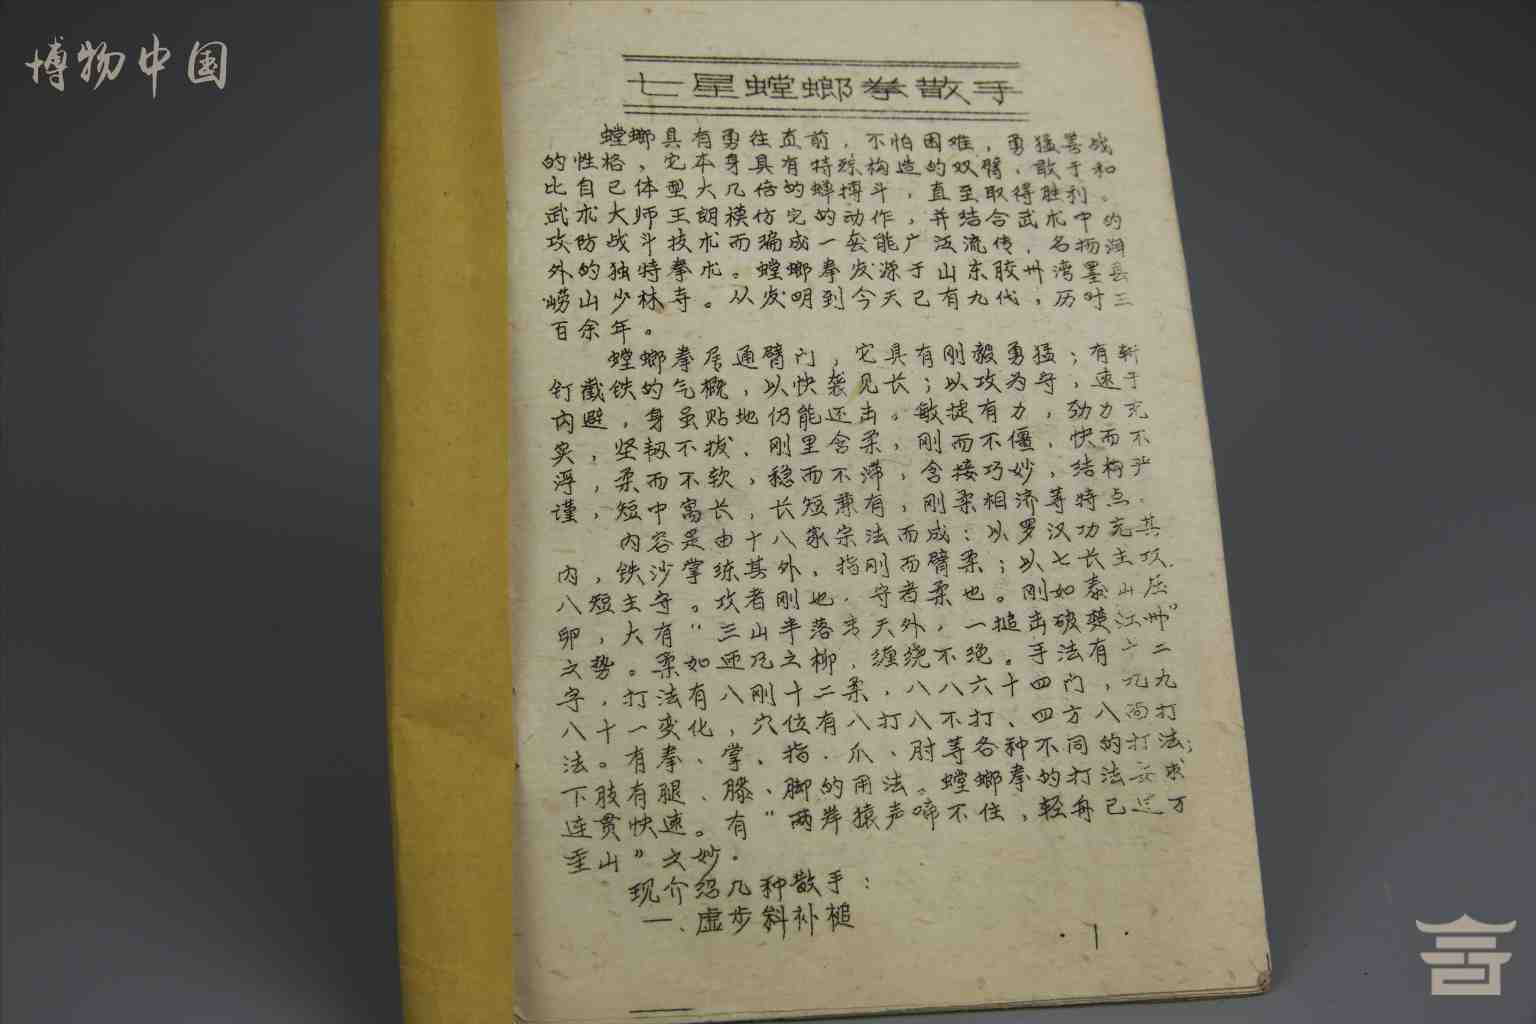 博物中国
七星螳螂拳散手
螳螂具有勇往直前,不怕困难,勇猛善战
的性格,它本身具有特殊构造的双臂,敢于和
比自己体型大几倍的蝉搏斗,直至取得胜利。
武术大师王朗模仿它的动作,并结合武术中的
攻防战斗技术而编成一套能广泛流传,名扬海
外的独特拳术。螳螂拳发源于山东胶州湾墨县
崂山少林寺。从发明到今天已有九代,历时三
百余年。
螳螂拳居通臂门,它具有刚毅勇猛;有斩
钉截铁的气概,以快袭见长;以攻为守,速于
内避,身虽贴地仍能还击。敏捷有力,劲力充
实,坚韧不拔、刚里含柔,刚而不僵、快而不
浮,柔而不软,稳而不滞,含接巧妙,结构严
谨,短中寓长,长短兼有,刚柔相济等特点。
内容是由十八家宗法而成:以罗汉功充其
内,铁沙掌练其外,指刚而臂柔;以七长主攻、
八短主守。攻者刚也,守者柔也。刚如泰山压
卵,大有"三山半落青天外,一搥击破楚江州"
之势。柔如迎风之柳,缠绕不绝。手法有十二
字,打法有八刚十二柔,八八六十四门,九九
八十一变化,穴位有八打八不打、四方八面打
法。有拳、掌、指、爪、肘等各种不同的打法;
下肢有腿、膝、脚的用法。螳螂拳的打法要求
连贯快速。有"两岸猿声啼不住,轻舟已过万
重山"之妙。
现介绍几种散手:
一、虚步斜补槌
·1·